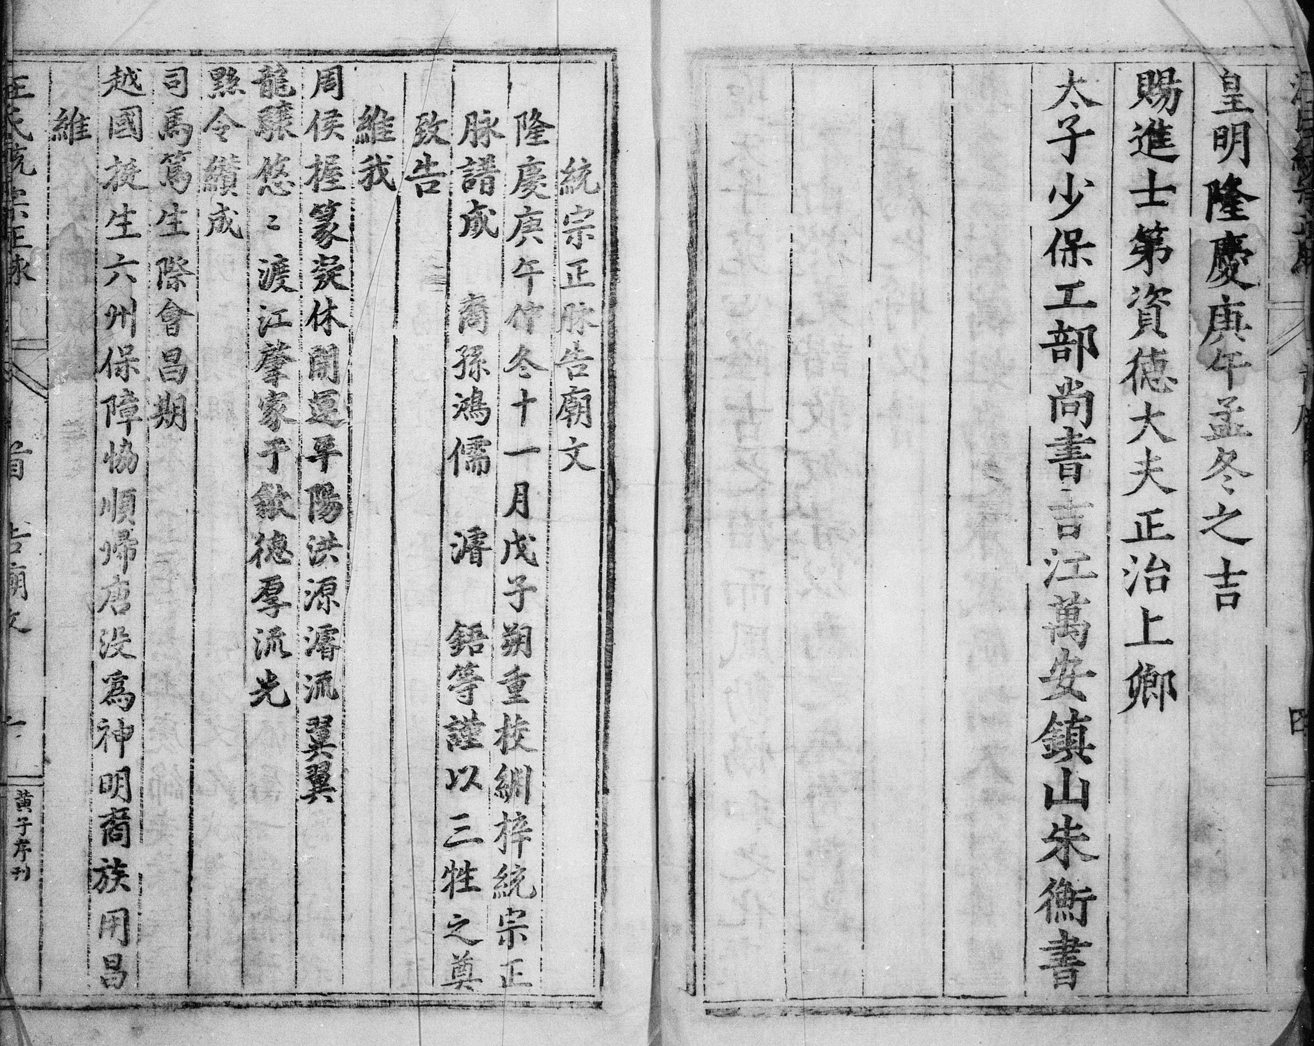 皇明隆慶庚午孟冬之吉
賜進士第資德大夫正治上卿
太子少保工部尚書吉江萬安鎮山朱衡書
四
統宗正脉告廟文
隆慶庚午仲冬十一月戊子朔重校綉梓統宗正
脉譜成 裔孫鴻儒 濬 鋙等謹以三牲之奠
致告
維我
周侯握篆凝休開運平陽洪源濬流翼翼
龍驤悠〻渡江肇家于歙德厚流光
黟令纘成
司馬篤生際會昌期
越國挺生六州保障恊順歸唐没爲神明裔族用昌
維
汪氏統宗正脉
首 告廟文
黄子序刊